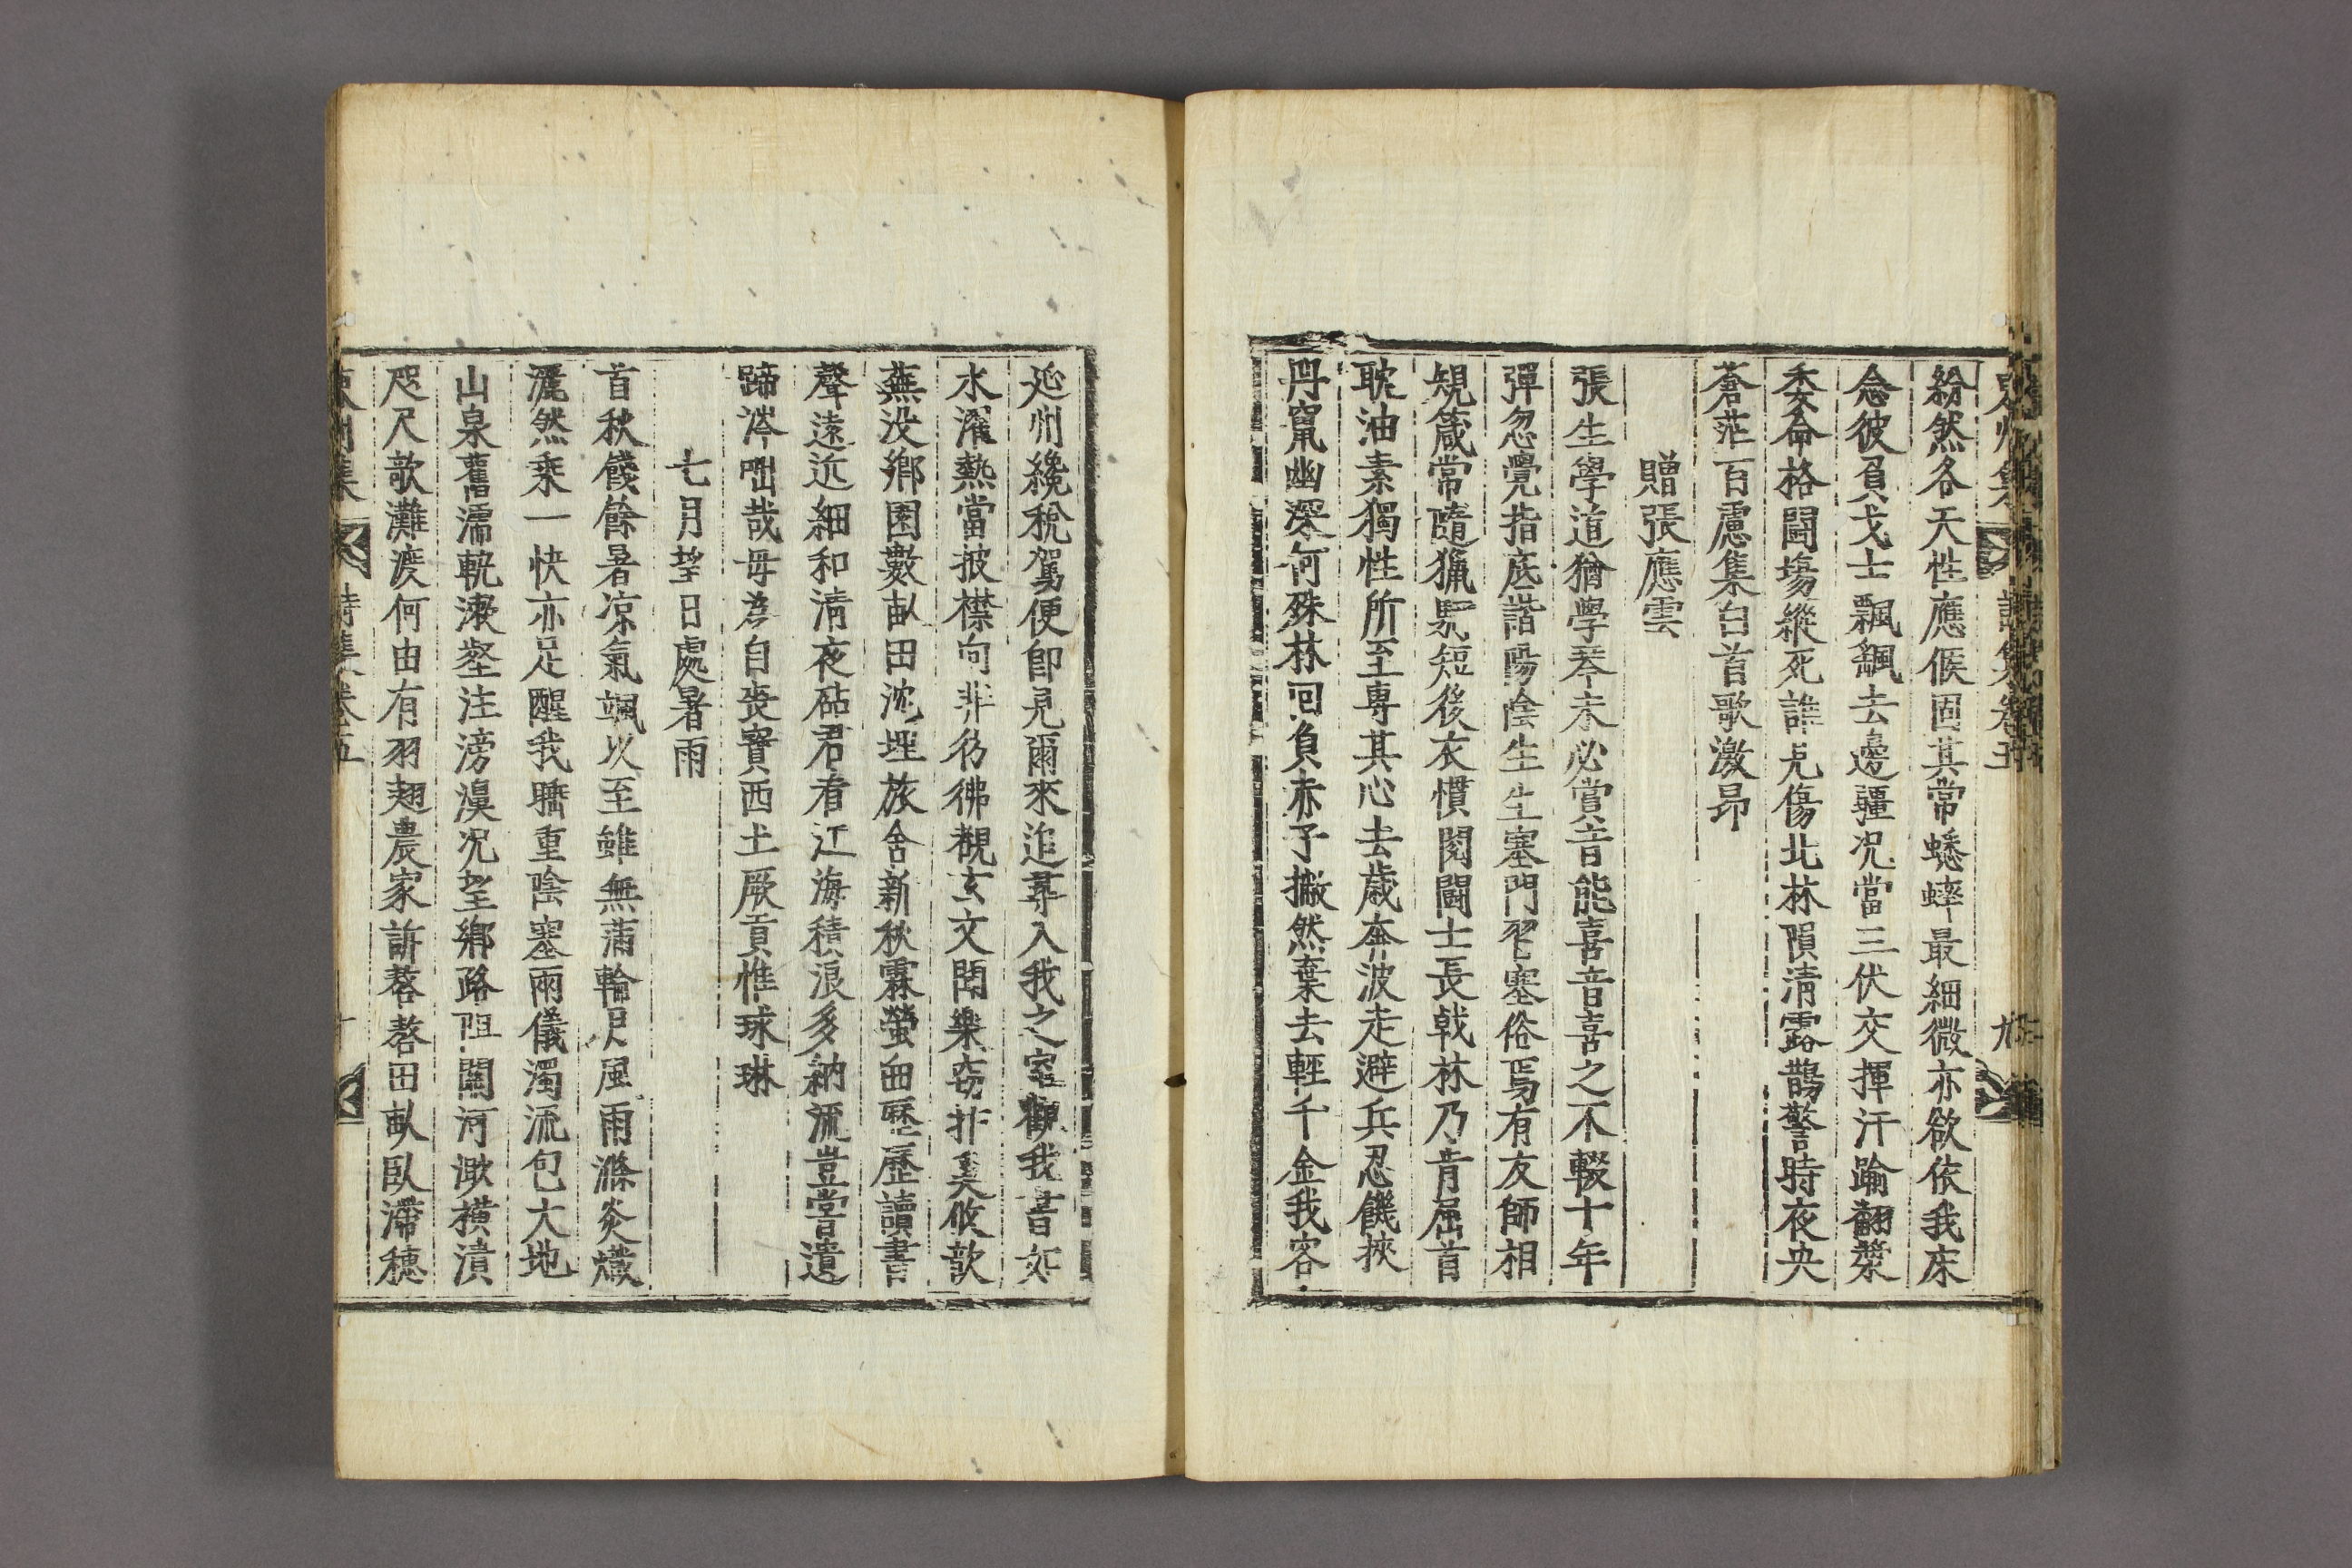 東州集 詩集卷五 九
紛然各天性應候固其常蟋蟀最細微亦欲依我床
念彼負戈士飄飄去邊疆况當三伏交揮汗踰翻漿
委命格鬪場縱死誰克傷北林隕淸露鵲驚時夜央
蒼茫百慮集白首歌激昂
贈張應雲
張生學道猶學琴未必賞音能喜音喜之不輟十年
彈忽覺指底諧陽陰生生塞門習塞俗焉有友師相
規箴常隨獵騎短後衣慣閱鬪士長戟林乃肯屈首
耽油素獨性所至專其心去歲奔波走避兵忍饑挾
冊竄幽深何殊林回負赤子撇然棄去輕千金我客
延州纔稅駕便卽見爾來追尋入我之室觀我書如
水濯熱當披襟向非彷彿覩玄文閑樂奈非奚攸歆
蕪没鄕園數畒田沈埋旅舍新秋霖螢囱歷歷讀書
聲遠近細和淸夜砧君看江海積浪多納流豈嘗遺
蹄涔咄哉毋爲自喪寶西土厥貢惟球琳
七月望日處暑雨
首秋餞餘暑凉氣颯以至雖無蒲輪尺風雨滌炎熾
灑然乘一快亦足醒我𥌒重陰塞兩儀濁流包大地
山泉舊濡軌潨壑注滂濞况望鄕路阻關河漱橫潰
咫尺歌灘渡何由有羽翅農家訴嗸嗸田畒臥滯穗
東州集 詩集卷五 十